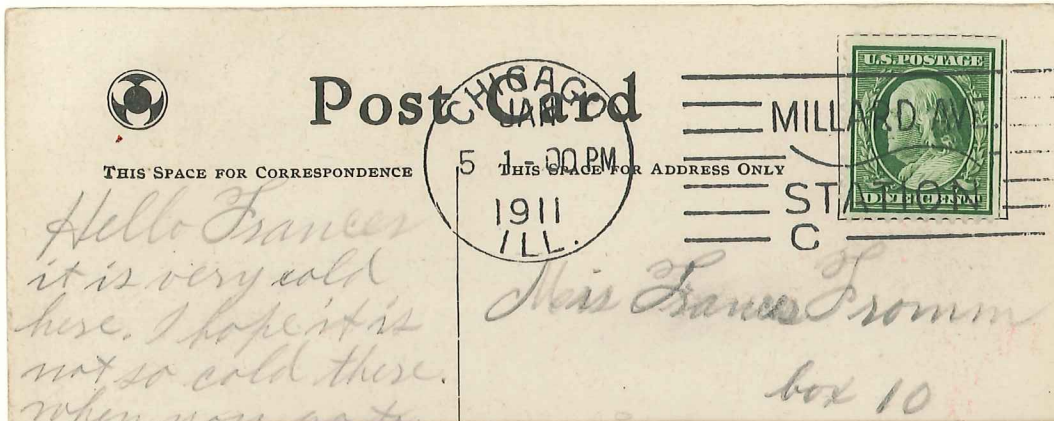 Post Card
CHICAGO
JAN
5 1-00 PM
1911
ILL.
MILLARD AVE.
STATION
C
U.S. POSTAGE
ONE CENT
THIS SPACE FOR CORRESPONDENCE
THIS SPACE FOR ADDRESS ONLY
Hello Frances
it is very cold
here. I hope it is
not so cold there.
when you go to
Miss Frances Fromm
box 10